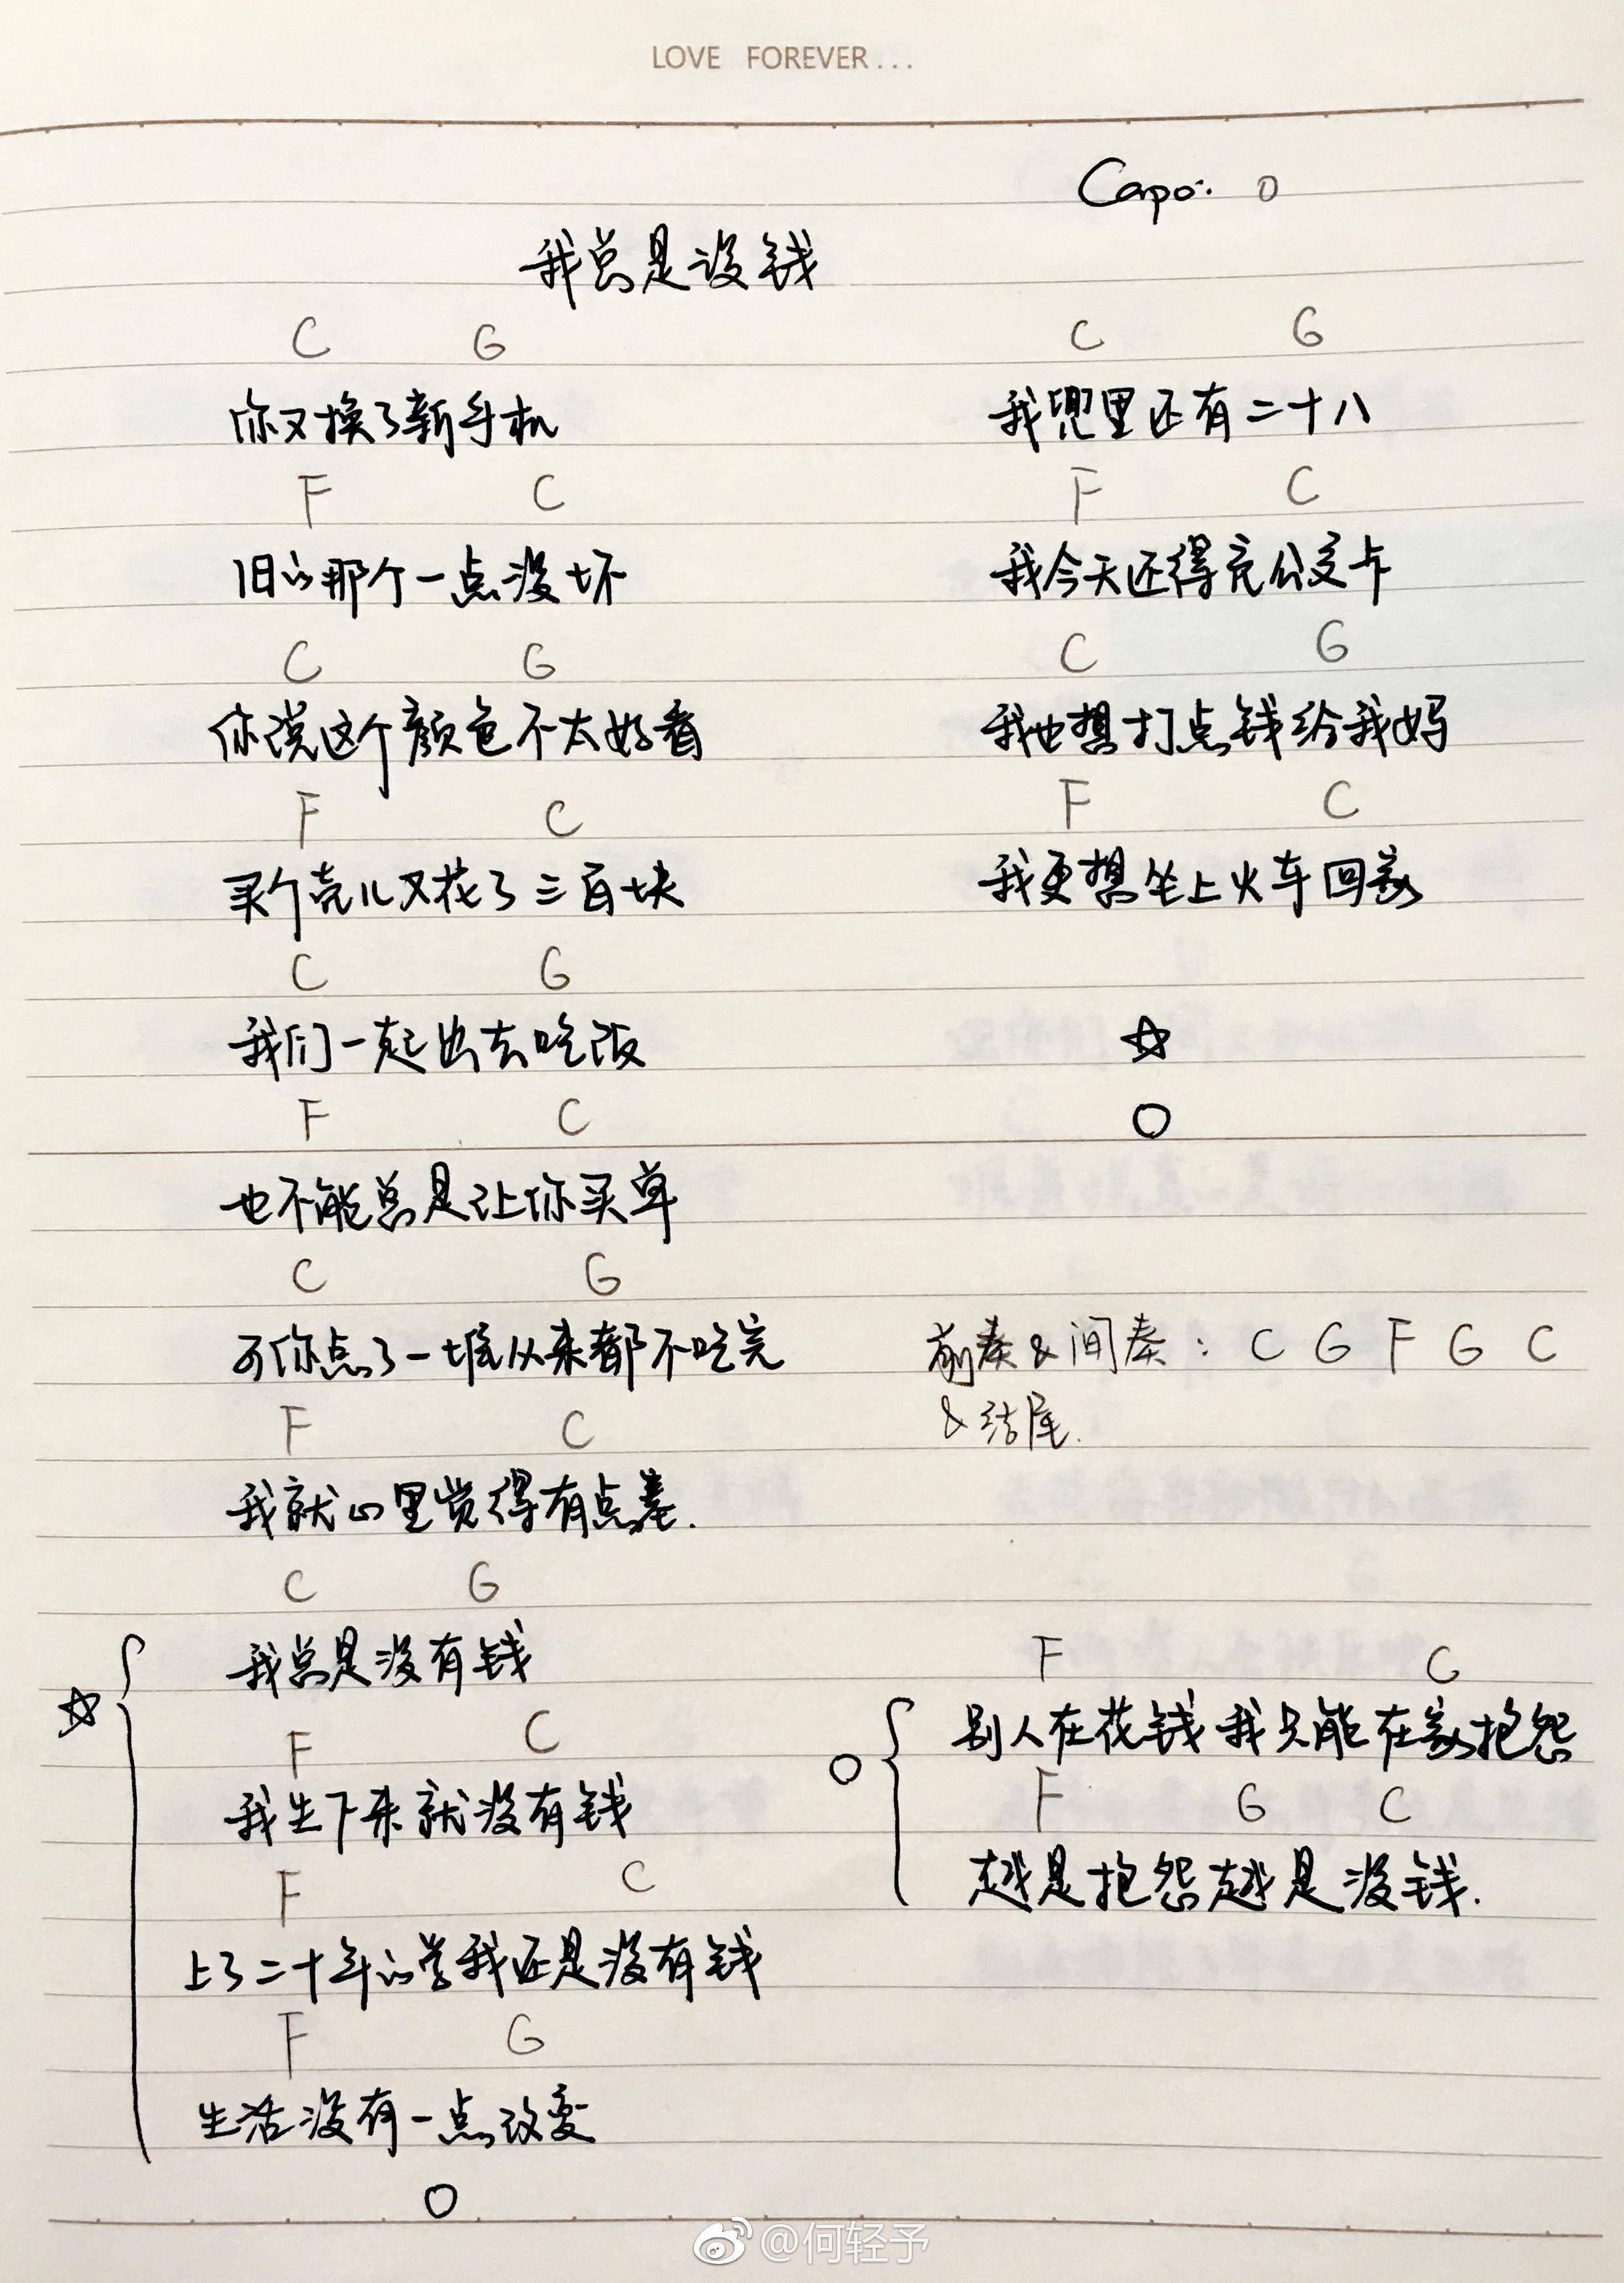 LOVE FOREVER...
Capo: 0
我总是没钱
C G
你又换了新手机
F C
旧的那个一点没坏
C G
你说这个颜色不太好看
F C
买个壳儿又花了三百块
C G
我们一起出去吃饭
F C
也不能总是让你买单
C G
可你点了一堆从来都不吃完
F C
我就心里觉得有点羞.
C G
☆ 我总是没有钱
F C
我生下来就没有钱
F C
上了二十年的学我还是没有钱
F G
生活没有一点改变
○
C G
我兜里还有二十八
F C
我今天还得充公交卡
C G
我也想打点钱给我妈
F C
我更想坐上火车回家
☆
○
前奏&间奏: C G F G C
&结尾.
F C
○ 别人在花钱我只能在家抱怨
F G C
越是抱怨越是没钱.
@何轻予